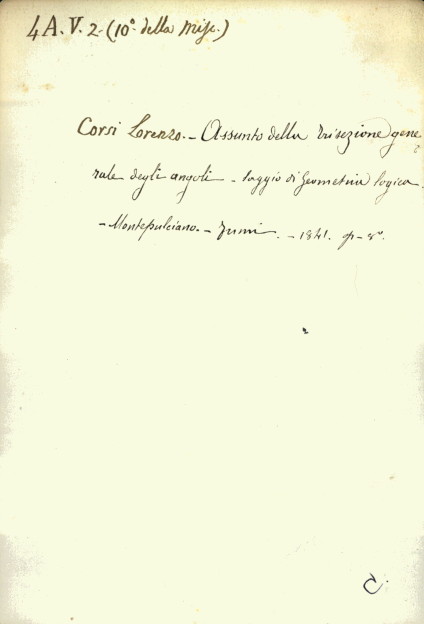 4 A. V. 2. (10° della Misc.)
Corsi Lorenzo. - Assunto della trisezione gene
rale degli angoli - saggio di Geometria logica.
- Montepulciano. - Fumi. - 1841. in-8°.
C.